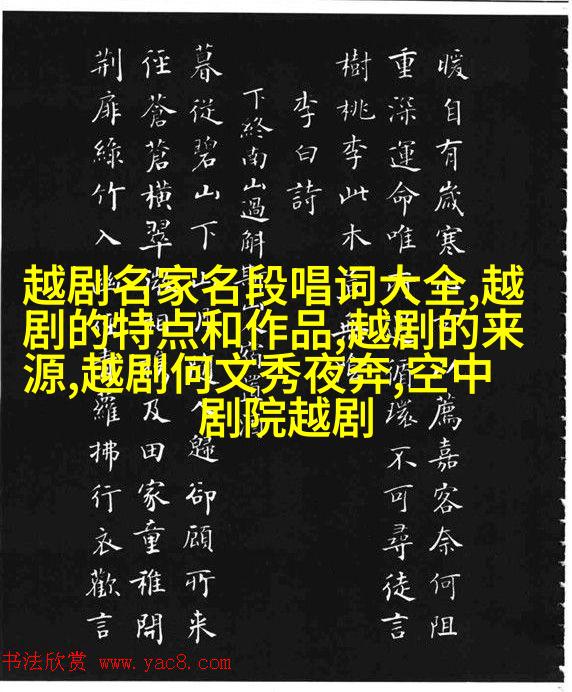 暖自有歲寒薦嘉客奈何阻
重深運命唯循環不可尋徒言
樹桃李此木
李白詩
下終南山過斛
暮從碧山下歸卻顧所来
徑蒼蒼橫翠及田家童稚開
荊扉綠竹入蘿拂行衣歡言
越剧名家名段唱词大全,越
剧的特点和作品,越剧的来
源,越剧何文秀夜奔,空中
剧院越剧
书法欣赏 www.yac8.com